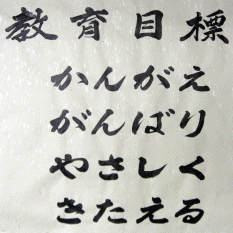 教育目標
かんがえ
がんばり
やさしく
きたえる